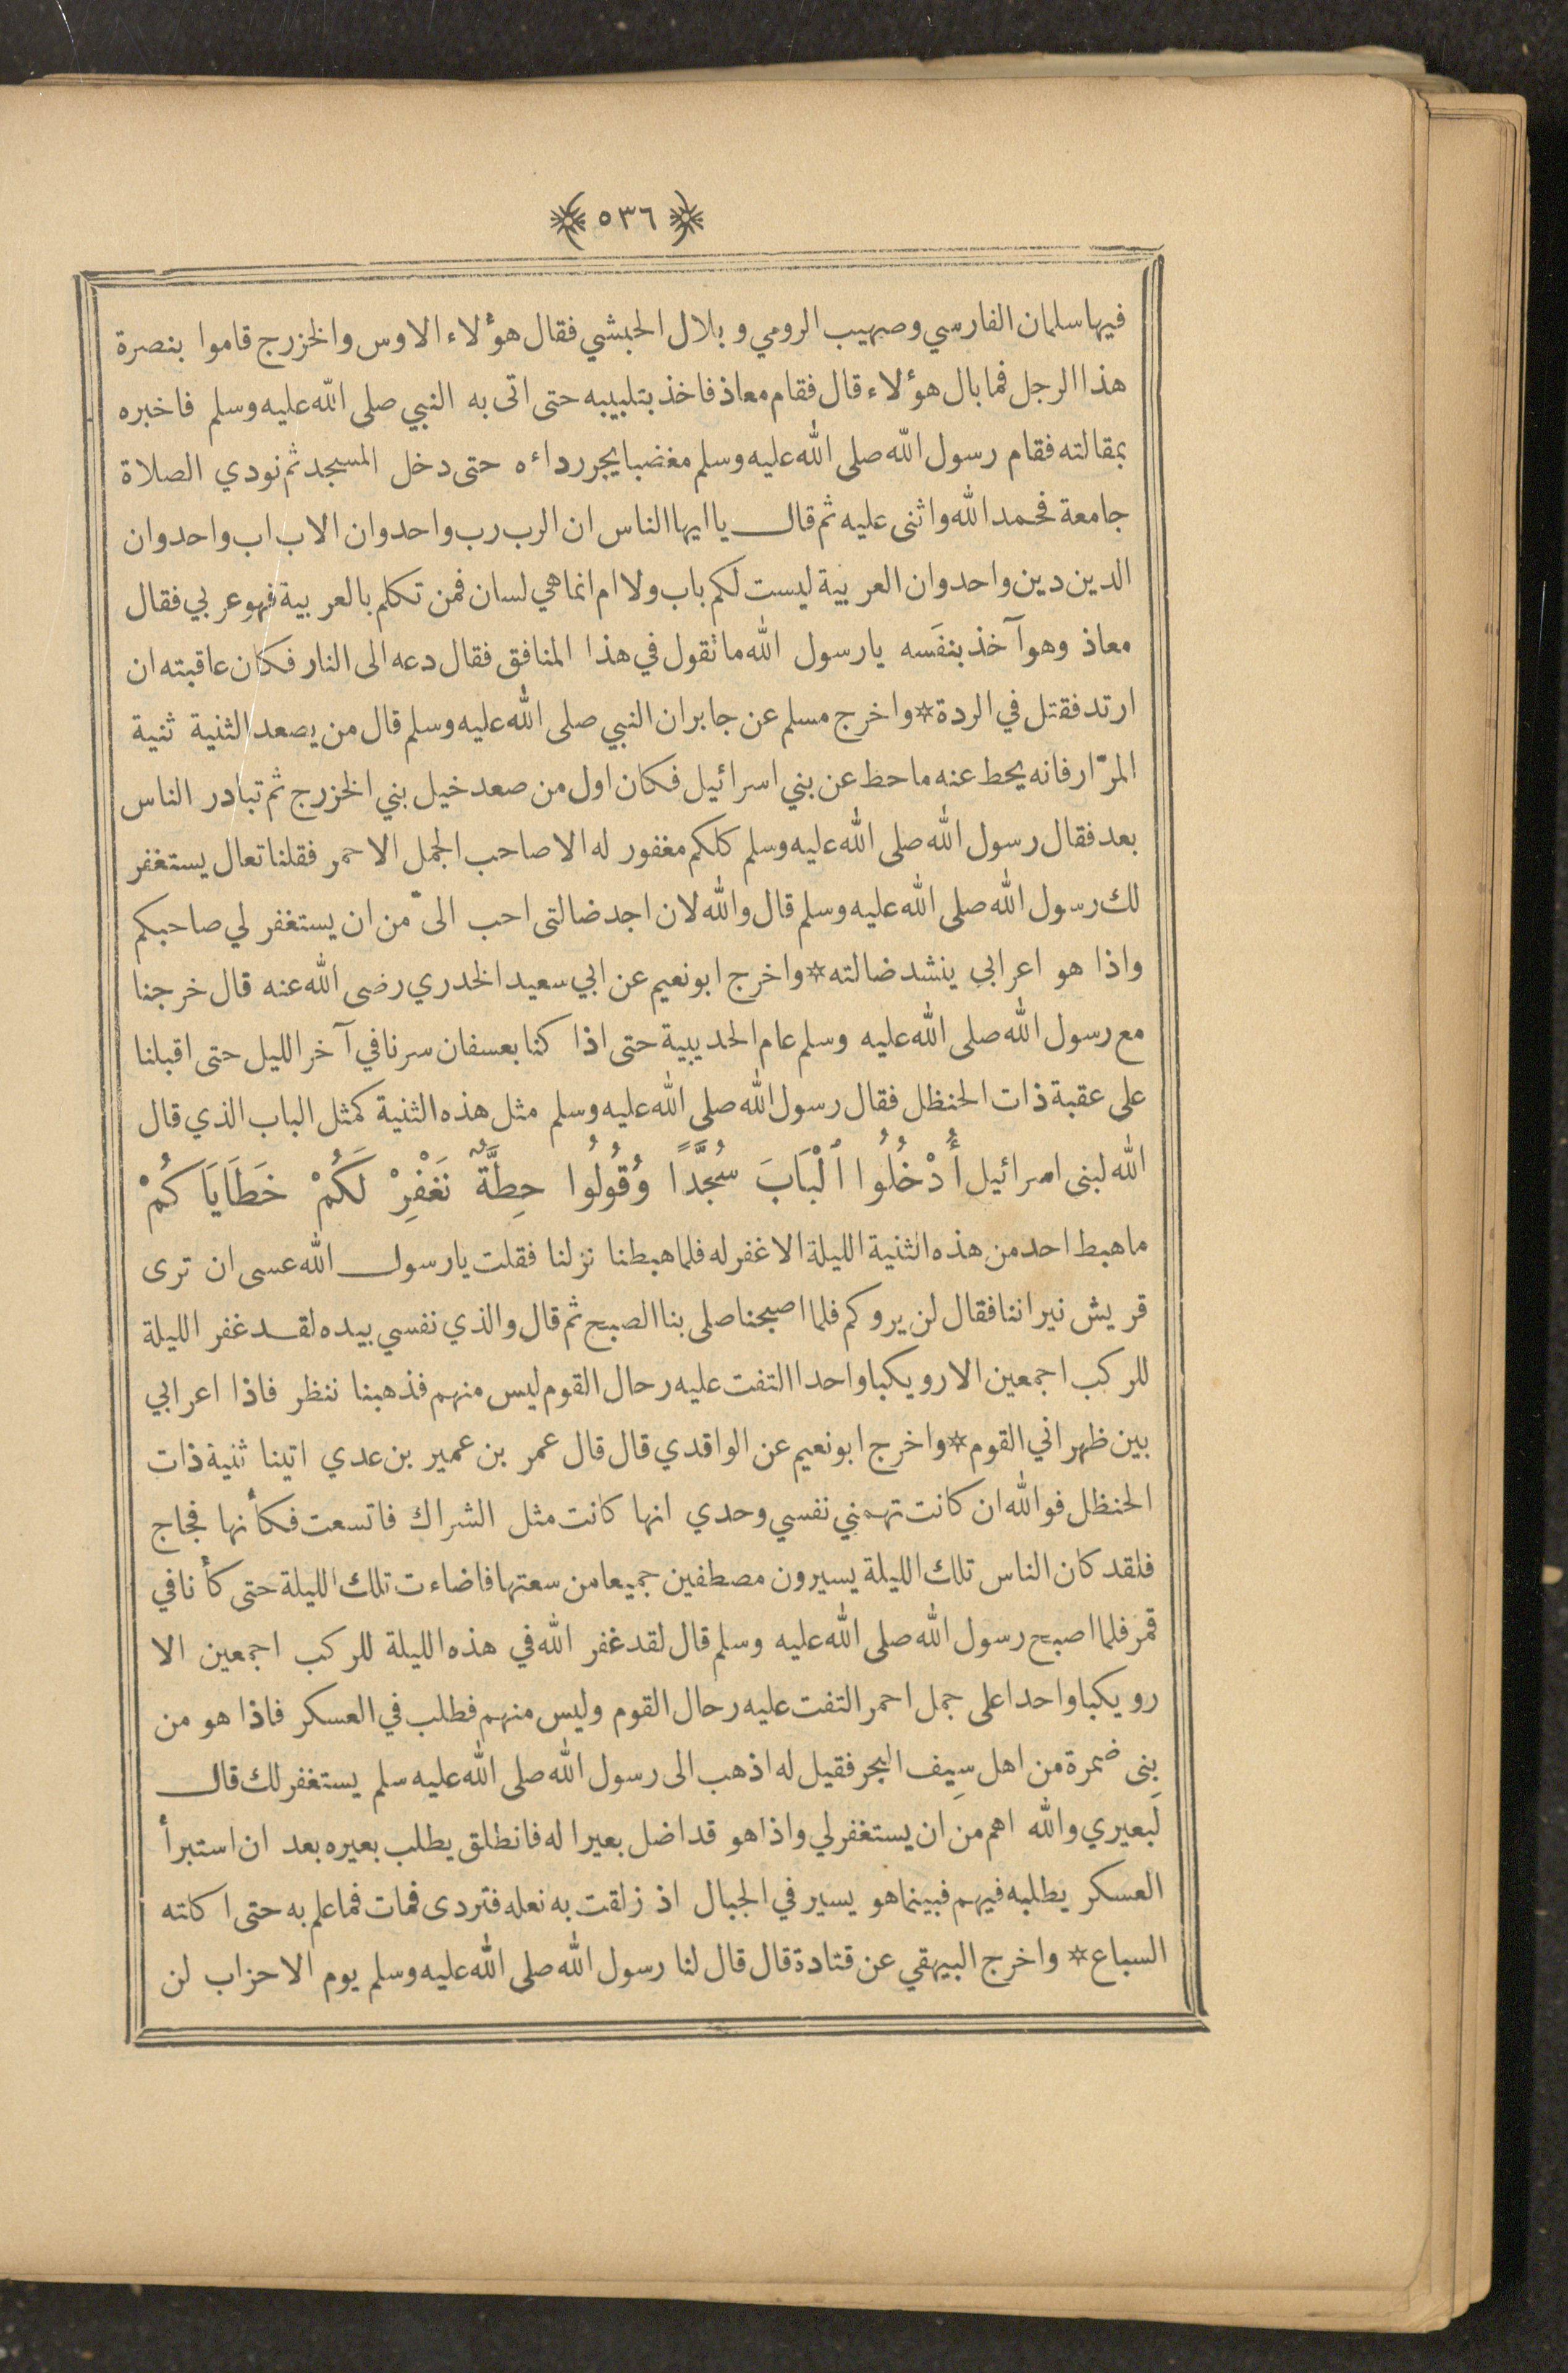 ٥٣٦
فيها سلمان الفارسي وصهيب الرومي وبلال الحبشي فقال هؤلاء الاوس والخزرج قاموا بنصرة
هذا الرجل فما بال هؤلاء قال فقام معاذ فاخذ بتلبيبه حتى اتى به النبي صلى الله عليه وسلم فاخبره
بمقالته فقام رسول الله صلى الله عليه وسلم مغضبا يجر رداءه حتى دخل المسجد ثم نودي الصلاة
جامعة فحمد الله واثنى عليه ثم قال يا ايها الناس ان الرب رب واحد وان الاب اب واحد وان
الدين دين واحد وان العربية ليست لكم باب ولا ام انما هي لسان فمن تكلم بالعربية فهو عربي فقال
معاذ وهو آخذ بنفَسه يا رسول الله ما تقول في هذا المنافق فقال دعه الى النار فكان عاقبته ان
ارتد فقتل في الردة * واخرج مسلم عن جابر ان النبي صلى الله عليه وسلم قال من يصعد الثنية ثنية
المرّار فانه يحط عنه ما حظ عن بني اسرائيل فكان اول من صعد خيل بني الخزرج ثم تبادر الناس
بعد فقال رسول الله صلى الله عليه وسلم كلكم مغفور له الا صاحب الجمل الاحمر فقلنا تعال يستغفر
لك رسول الله صلى الله عليه وسلم قال والله لان اجد ضالتى احب الىّ من ان يستغفر لي صاحبكم
واذا هو اعرابي ينشد ضالته * واخرج ابو نعيم عن ابي سعيد الخدري رضى الله عنه قال خرجنا
مع رسول الله صلى الله عليه وسلم عام الحديبية حتى اذا كنا بعسفان سرنا في آخر الليل حتى اقبلنا
على عقبة ذات الحنظل فقال رسول الله صلى الله عليه وسلم مثل هذه الثنية كمثل الباب الذي قال
الله لبنى اسرائيل أُدْخُلُوا ٱلْبَابَ سُجَّدًا وَقُولُوا حِطَّةٌ نَغْفِرْ لَكُمْ خَطَايَا كُمْ
ما هبط احد من هذه الثنية الليلة الا غفر له فلما هبطنا نزلنا فقلت يا رسول الله عسى ان ترى
قريش نيراننا فقال لن يروكم فلما اصبحنا صلى بنا الصبح ثم قال والذي نفسي بيده لقد غفر الليلة
للركب اجمعين الا رويكبا واحدا التفت عليه رحال القوم ليس منهم فذهبنا ننظر فاذا اعرابي
بين ظهراني القوم * واخرج ابو نعيم عن الواقدي قال قال عمر بن عمير بن عدي اتينا ثنية ذات
الحنظل فو الله ان كانت تهمني نفسي وحدي انها كانت مثل الشراك فاتسعت فكأنها فجاج
فلقد كان الناس تلك الليلة يسيرون مصطفين جميعا من سعتها فاضاءت تلك الليلة حتى كأنا في
قمر فلما اصبح رسول الله صلى الله عليه وسلم قال لقد غفر الله في هذه الليلة للركب اجمعين الا
رويكبا واحدا على جمل احمر التفت عليه رحال القوم وليس منهم فطلب في العسكر فاذا هو من
بنى ضمرة من اهل سِيف البحر فقيل له اذهب الى رسول الله صلى الله عليه سلم يستغفر لك قال
لَبعيري والله اهم من ان يستغفر لي واذا هو قد اضل بعيرا له فانطلق يطلب بعيره بعد ان استبرأ
العسكر يطلبه فيهم فبينما هو يسير في الجبال اذ زلقت به نعله فتردى فمات فما علم به حتى اكلته
السباع * واخرج البيهقي عن قتادة قال قال لنا رسول الله صلى الله عليه وسلم يوم الاحزاب لن